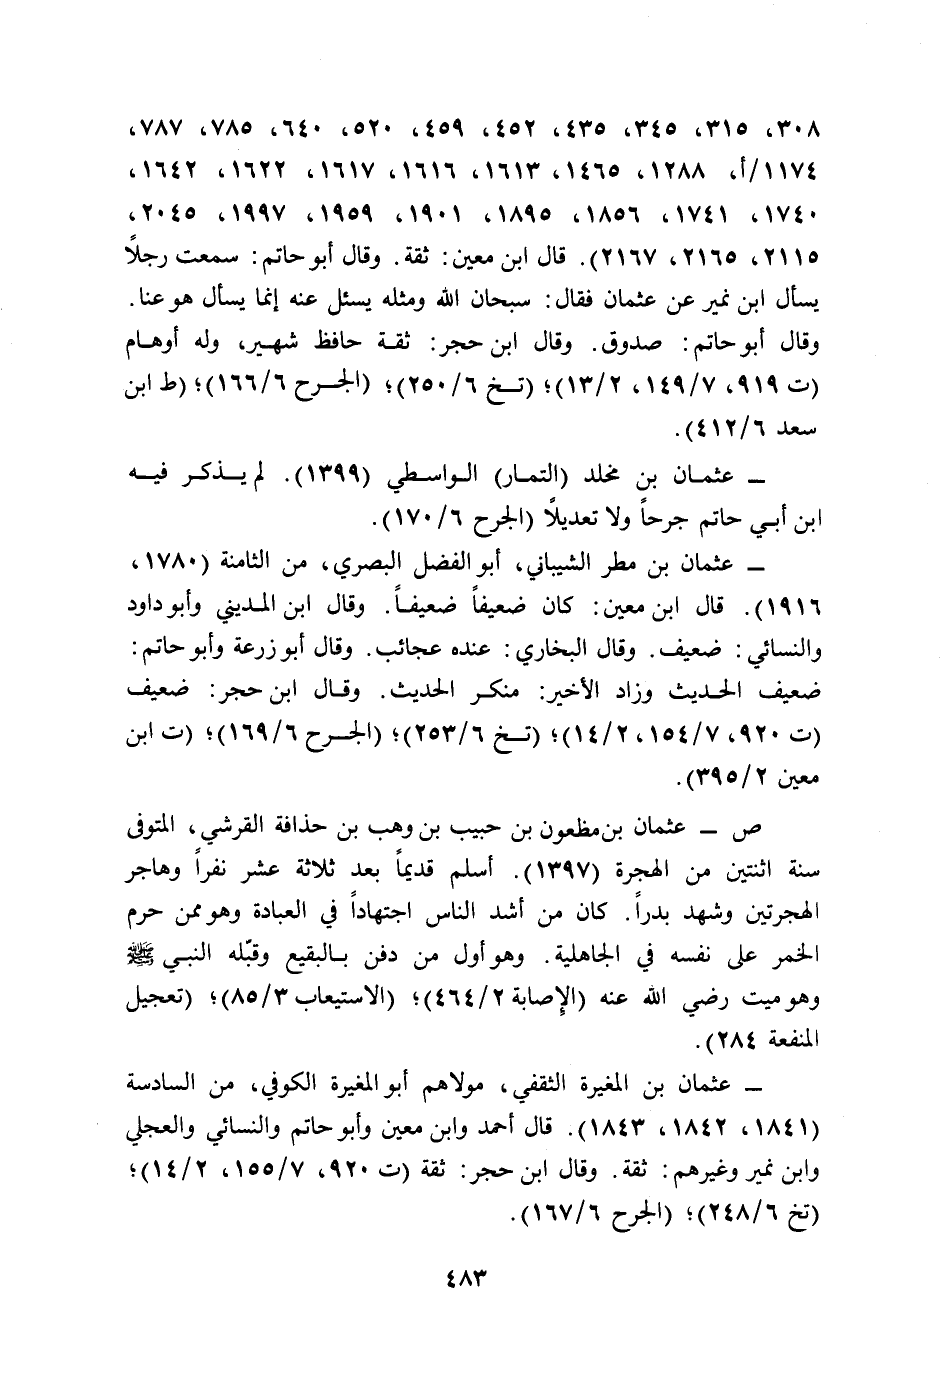 ٣٠٨، ٣١٥، ٣٤٥، ٤٣٥، ٤٥٢، ٤٥٩، ٥٢٠، ٦٤٠، ٧٨٥، ٧٨٧،
١١٧٤/أ، ١٢٨٨، ١٤٦٥، ١٦١٣، ١٦١٦، ١٦١٧، ١٦٢٢، ١٦٤٢،
١٧٤٠، ١٧٤١، ١٨٥٦، ١٨٩٥، ١٩٠١، ١٩٥٩، ١٩٩٧، ٢٠٤٥،
٢١١٥، ٢١٦٥، ٢١٦٧). قال ابن معين: ثقة. وقال أبو حاتم: سمعت رجلاً
يسأل ابن نمير عن عثمان فقال: سبحان الله ومثله يسئل عنه إنما يسأل هو عنا.
وقال أبو حاتم: صدوق. وقال ابن حجر: ثقة حافظ شهير، وله أوهام
(ت ٩١٩، ١٤٩/٧، ١٣/٢)؛ (تخ ٢٥٠/٦)؛ (الجرح ١٦٦/٦)؛ (ط ابن
سعد ٤١٢/٦).
ـ عثمان بن مخلد (التمار) الواسطي (١٣٩٩). لم يذكر فيه
ابن أبي حاتم جرحاً ولا تعديلاً (الجرح ١٧٠/٦).
ـ عثمان بن مطر الشيباني، أبو الفضل البصري، من الثامنة (١٧٨٠،
١٩١٦). قال ابن معين: كان ضعيفاً ضعيفاً. وقال ابن المديني وأبو داود
والنسائي: ضعيف. وقال البخاري: عنده عجائب. وقال أبو زرعة وأبو حاتم:
ضعيف الحديث وزاد الأخير: منكر الحديث. وقال ابن حجر: ضعيف
(ت ٩٢٠، ١٥٤/٧، ١٤/٢)؛ (تخ ٢٥٣/٦)؛ (الجرح ١٦٩/٦)؛ (ت ابن
معين ٣٩٥/٢).
ص ـ عثمان بن مظعون بن حبيب بن وهب بن حذافة القرشي، المتوفى
سنة اثنتين من الهجرة (١٣٩٧). أسلم قديماً بعد ثلاثة عشر نفراً وهاجر
الهجرتين وشهد بدراً. كان من أشد الناس اجتهاداً في العبادة وهو ممن حرم
الخمر على نفسه في الجاهلية. وهو أول من دفن بالبقيع وقبّله النبي ﷺ
وهو ميت رضي الله عنه (الإصابة ٤٦٤/٢)؛ (الاستيعاب ٨٥/٣)؛ (تعجيل
المنفعة ٢٨٤).
ـ عثمان بن المغيرة الثقفي، مولاهم أبو المغيرة الكوفي، من السادسة
(١٨٤١، ١٨٤٢، ١٨٤٣). قال أحمد وابن معين وأبو حاتم والنسائي والعجلي
وابن نمير وغيرهم: ثقة. وقال ابن حجر: ثقة (ت ٩٢٠، ١٥٥/٧، ١٤/٢)؛
(تخ ٢٤٨/٦)؛ (الجرح ١٦٧/٦).
٤٨٣